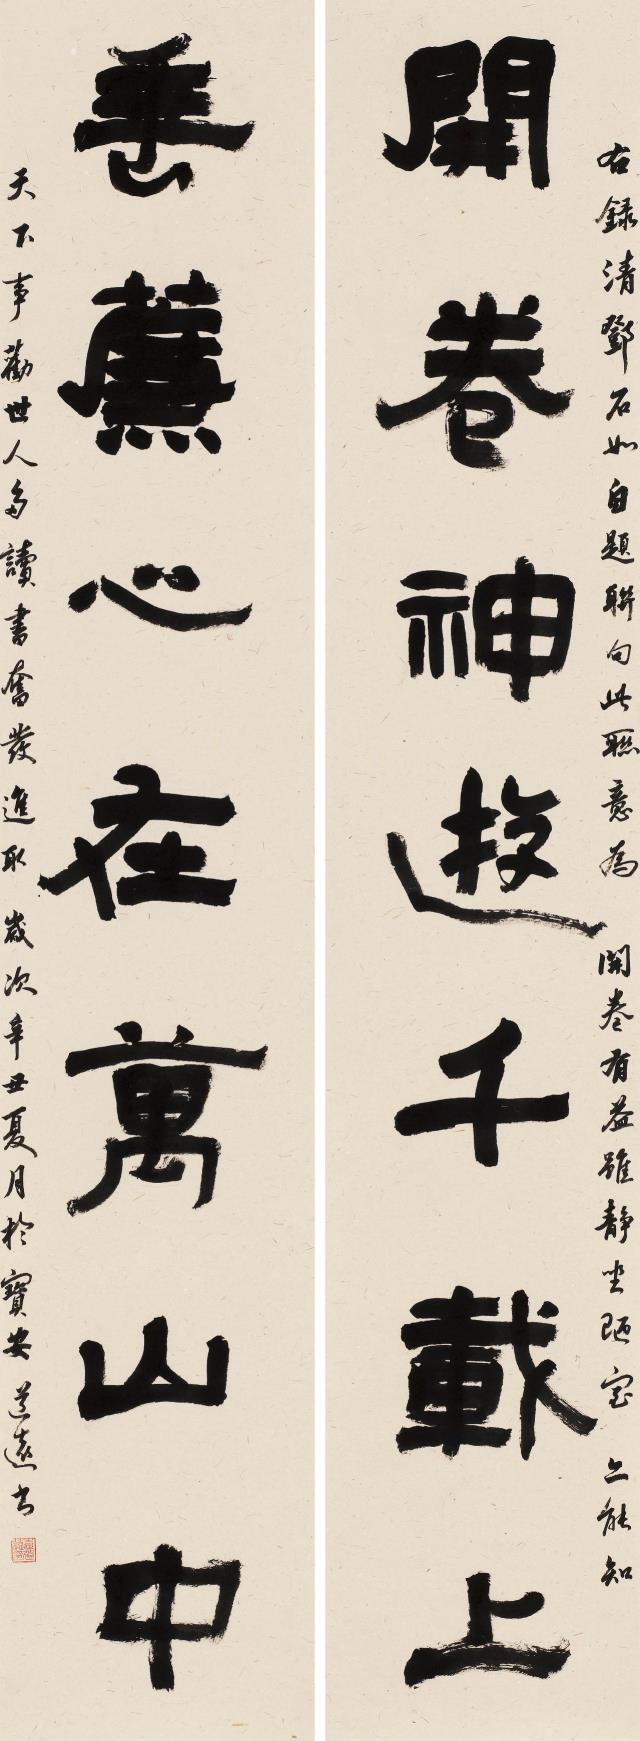 開卷神遊千載上
垂薕心在萬山中
右錄清鄧石如自題聯句此聯意為 開卷有益雖靜坐陋室亦能知
天下事勸世人多讀書奮發進取歲次辛丑夏月於寶安 道遠書